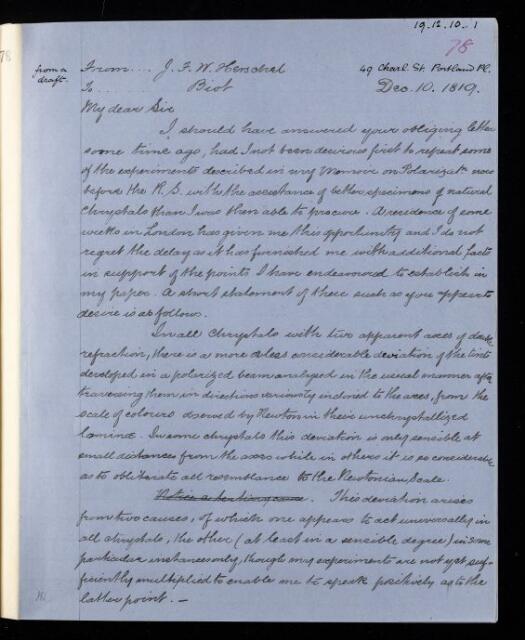 19.12.10.1
78
78
from a
draft.
From .... J. F. W. Herschel
49 Charl. St. Portland Pl.
To ........ Biot
Dec. 10. 1819.
My dear Sir
I should have answered your obliging letter
some time ago, had I not been desirous first to repeat some
of the experiments described in my Memoir on Polarizatn now
before the R. S. with the assistance of better specimens of natural
Chrystals than I was then able to procure. A residence of some
weeks in London has given me this opportunity and I do not
regret the delay as it has furnished me with additional facts
in support of the points I have endeavoured to establish in
my paper. A short statement of these such as you appear to
desire is as follows.
In all Chrystals with two apparent axes of double
refraction, there is a more or less considerable deviation of the tints
developed in a polarized beam analysed in the usual manner after
traversing them in directions variously inclined to the axes, from the
scale of colours observed by Newton in their unchrystallized
laminæ. In some chrystals this deviation is only sensible at
small distances from the axes while in others it is so considerable
as to obliterate all resemblance to the Newtonian Scale.
. This deviation arises
from two causes, of which one appears to act universally in
all chrystals, the other (at least in a sensible degree) in some
particular instances only, though my experiments are not yet suf-
ficiently multiplied to enable me to speak positively as to the
latter point. —